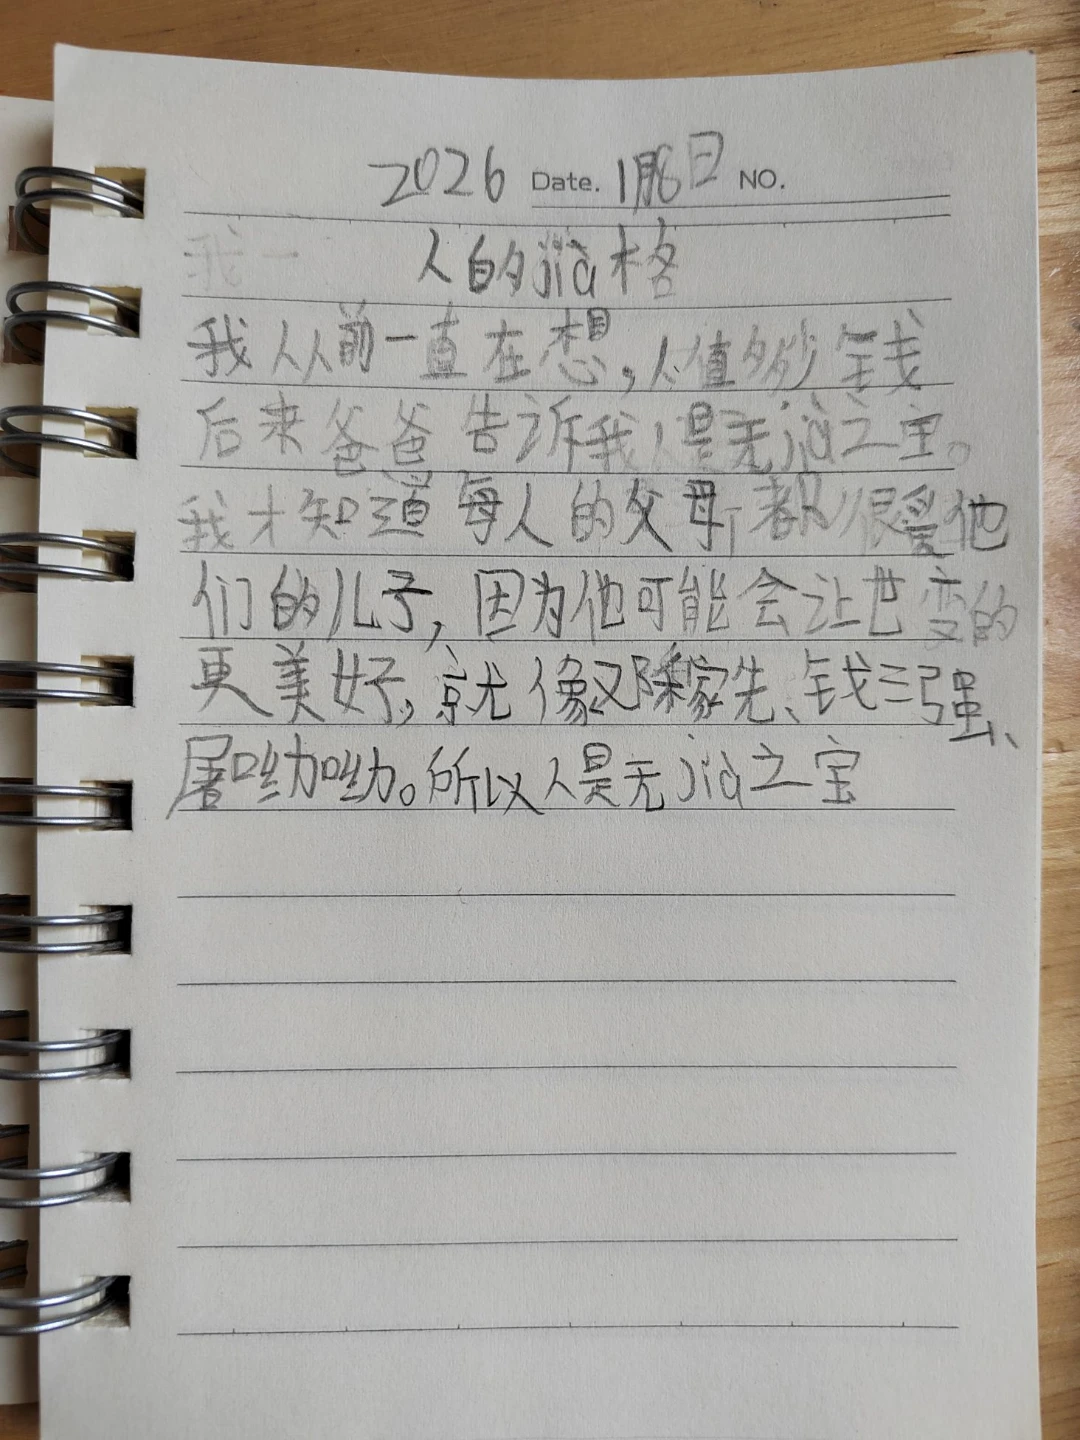 2026 Date. 1月6日 NO.
人的jià格
我从前一直在想，人值多少钱
后来爸爸告诉我人是无jià之宝。
我才知道每人的父母都很爱他
们的儿子，因为他可能会让世变的
更美好，就像邓稼先、钱三强、
屠呦呦。所以人是无jià之宝